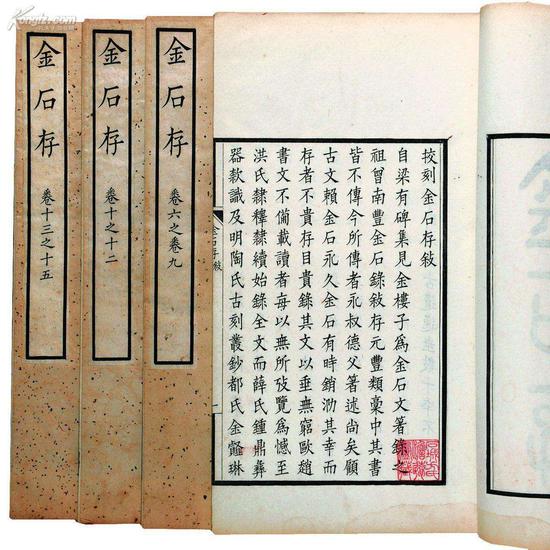 校刻金石存敘
自梁有碑集見金樓子為金石文箸錄之
祖曾南豐金石錄敘存元豐類稾中其書
皆不傳今所傳者永叔德父箸述尚矣顧
古文賴金石永久金石有時銷泐其幸而
存者不貴存目貴錄其文以垂無窮歐趙
書文不備載讀者每以無所攷覽為憾至
洪氏隸釋隸續始錄全文而薛氏鍾鼎彝
器款識及明陶氏古刻叢鈔都氏金薤琳
金石存敘
一
金石存
卷六之卷九
金石存
卷十之十二
金石存
卷十三之十五
Kongfz.com